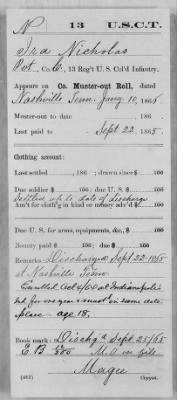 N 13 U.S.C.T.
Ira Nicholas
Pvt, Co. C, 13 Reg't U. S. Col'd Infantry.
Appears on Co. Muster-out Roll, dated
Nashville Tenn. Jany 10, 1866.
Muster-out to date 186 .
Last paid to Sept 22, 1865.
Clothing account:
Last settled 186 ; drawn since $ 100
Due soldier $ 100; due U. S. $ 100
Settled up to date of discharge
Am't for cloth'g in kind or money adv'd $ 100
Due U. S. for arms, equipments, &c., $ 100
Bounty paid $ 100; due $ 100
Remarks: Discharged Sept 22 1865
at Nashville Tenn
Enrolled Oct 4/64 at Indianapolis
Ind. for one year & must'd in same date
place - age 18,
Book mark: Disch'g'd Sept 25/65
E. B. M.O. on file
Magee
Copyist.